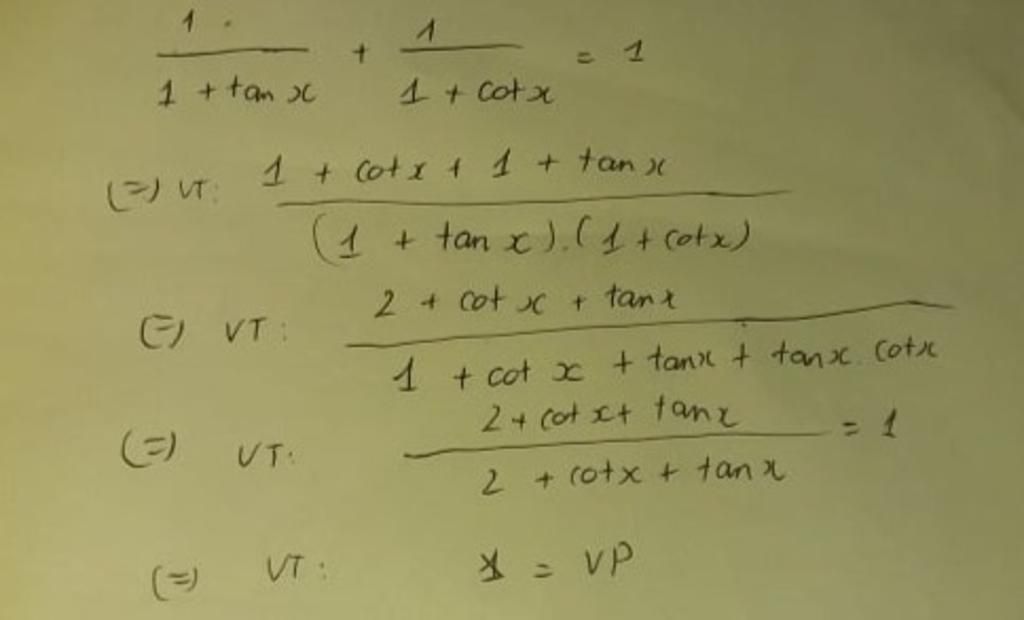 1/(1 + tan x) + 1/(1 + cot x) = 1
(=) VT: (1 + cot x + 1 + tan x)/((1 + tan x).(1 + cot x))
(=) VT: (2 + cot x + tan x)/(1 + cot x + tan x + tan x. cot x)
(=) VT: (2 + cot x + tan x)/(2 + cot x + tan x) = 1
(=) VT: 1 = VP